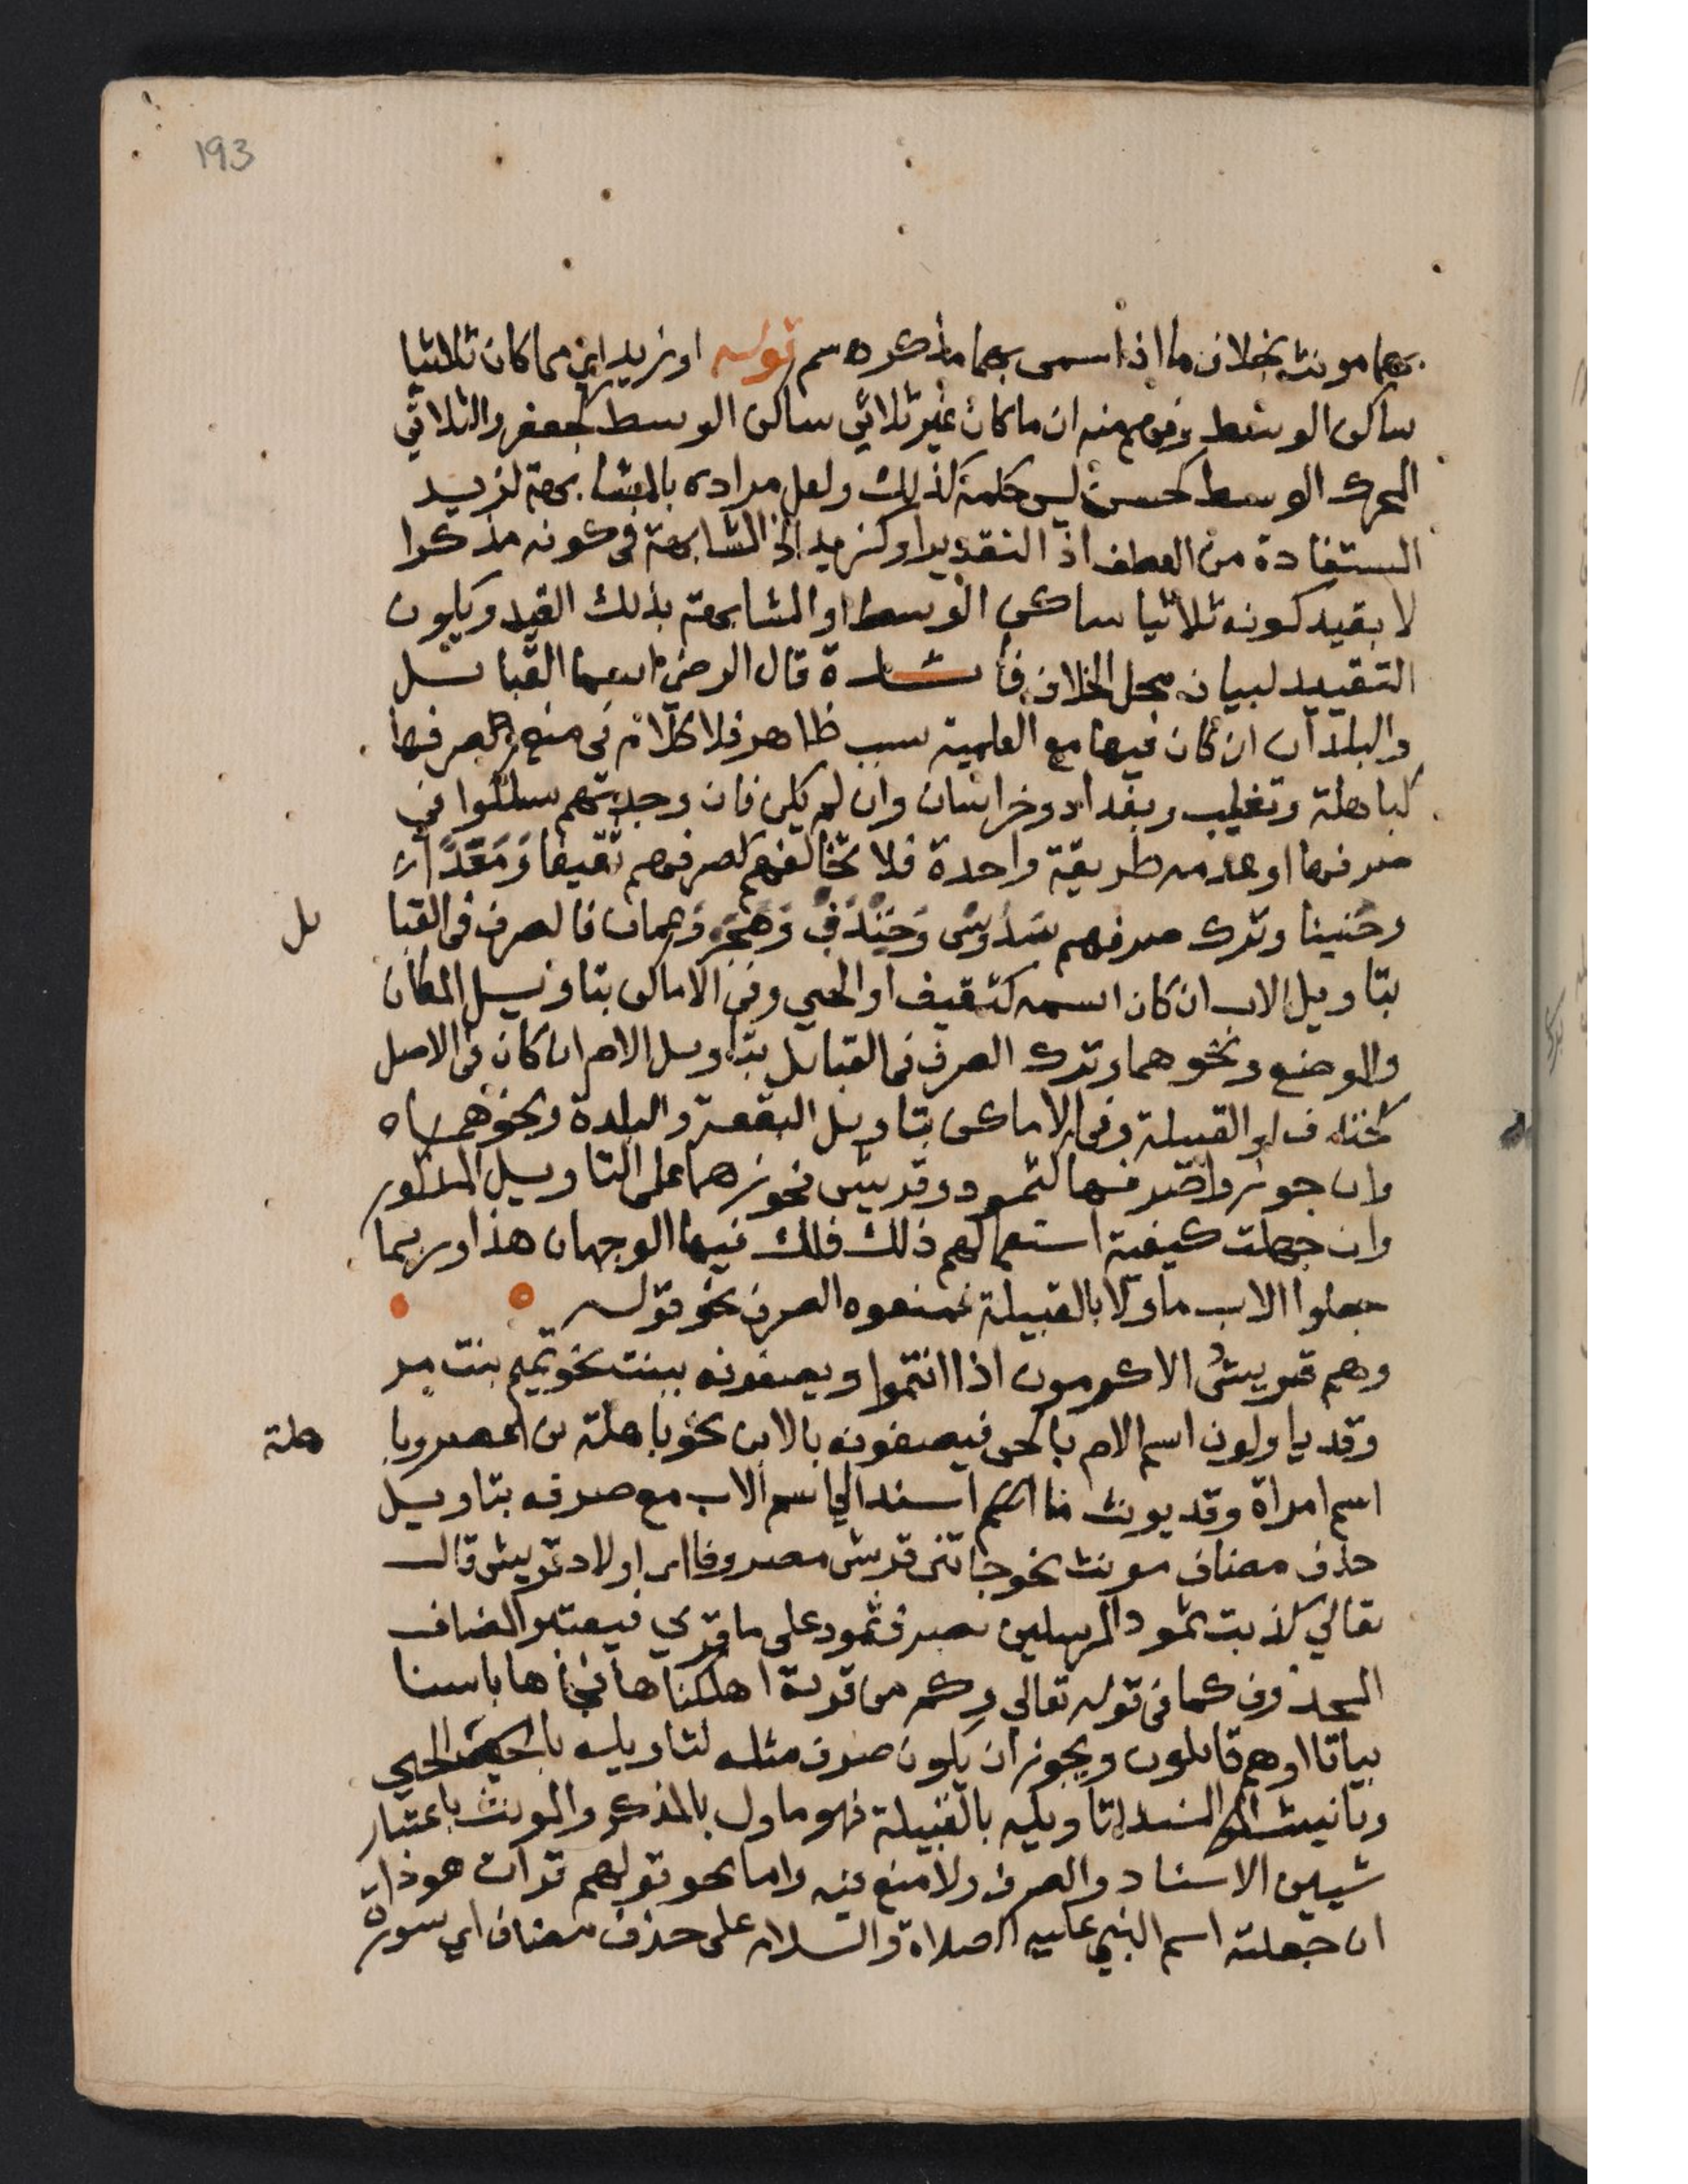 193
بهما مونث بخلاف ما اذا سمى بهما مذكر ه سم قوله او زيد اي مما كان ثلاثيا
ساكن الوسط وفهم منه ان ما كان غير ثلاثي ساكن الوسط كجعفر والثلاثي
المحرك الوسط كحسن ليس حكمه كذلك ولعل مراده بالمشابهة لزيد
المستفادة من العطف اذ التقدير او كزيد الخ المشابهة في كونه مذكرا
لا بقيد كونه ثلاثيا ساكن الوسط او المشابهة بذلك القيد ويكون
التقييد لبيان محل الخلاف فائدة قال الرضي اسما القبائل
والبلدان ان كان فيها مع العلمية سبب ظاهر فلا كلام في منع صرفها
كباهلة وتغلب وبغداد وخراسان وان لم يكن فان وجدتهم سلكوا في
صرفها او عدمه طريقة واحدة فلا تخالفهم كصرفهم ثقيفا ومعدا
وحنينا وترك صرفهم سدوس وخندف وهجر وعمان فالصرف في القبا
يل
بتاويل الاب ان كان اسمه كثقيف او الحي وفي الاماكن بتاويل المكان
والموضع ونحوهما وترك الصرف في القبايل بتاويل الام ان كان في الاصل
كخندف او القبيلة وفي الاماكن بتاويل البقعة والبلدة ونحوهما
وان جوزوا صرفها كثمود وقريش فجوزهما على التاويل المذكور
وان جهلت كيفية استعمالهم ذلك فلك فيها الوجهان هذا وربما
جعلوا الاب ماولا بالقبيلة فمنعوه الصرف نحو قوله
وهم قريش الاكرمون اذا انتموا ويصفونه ببنت نحو تميم بنت مر
وقد ياولون اسم الام بالحي فيصفونه بالابن نحو باهلة بن اعصر وبا
هلة
اسم امراة وقد يونث ما اسند الي اسم الاب مع صرفه بتاويل
حذف مضاف مونث نحو جاتني قريش مصروفا اي اولاد قريش قال
تعالي كذبت ثمود المرسلين بصرف ثمود على ما قري فيعتبر المضاف
المحذوف كما في قوله تعالي وكم من قرية اهلكناها فجاها باسنا
بياتا او هم قايلون ويجوز ان يكون صرف مثله لتاويله بالحي
وتانيث المسند لتاويله بالقبيلة فهو ماول بالمذكر والمونث باعتبار
شييين الاسناد والصرف ولا منع فيه واما نحو قولهم قرات هودا
ان جعلته اسم النبي عليه الصلاة والسلام على حذف مضاف اي سورة